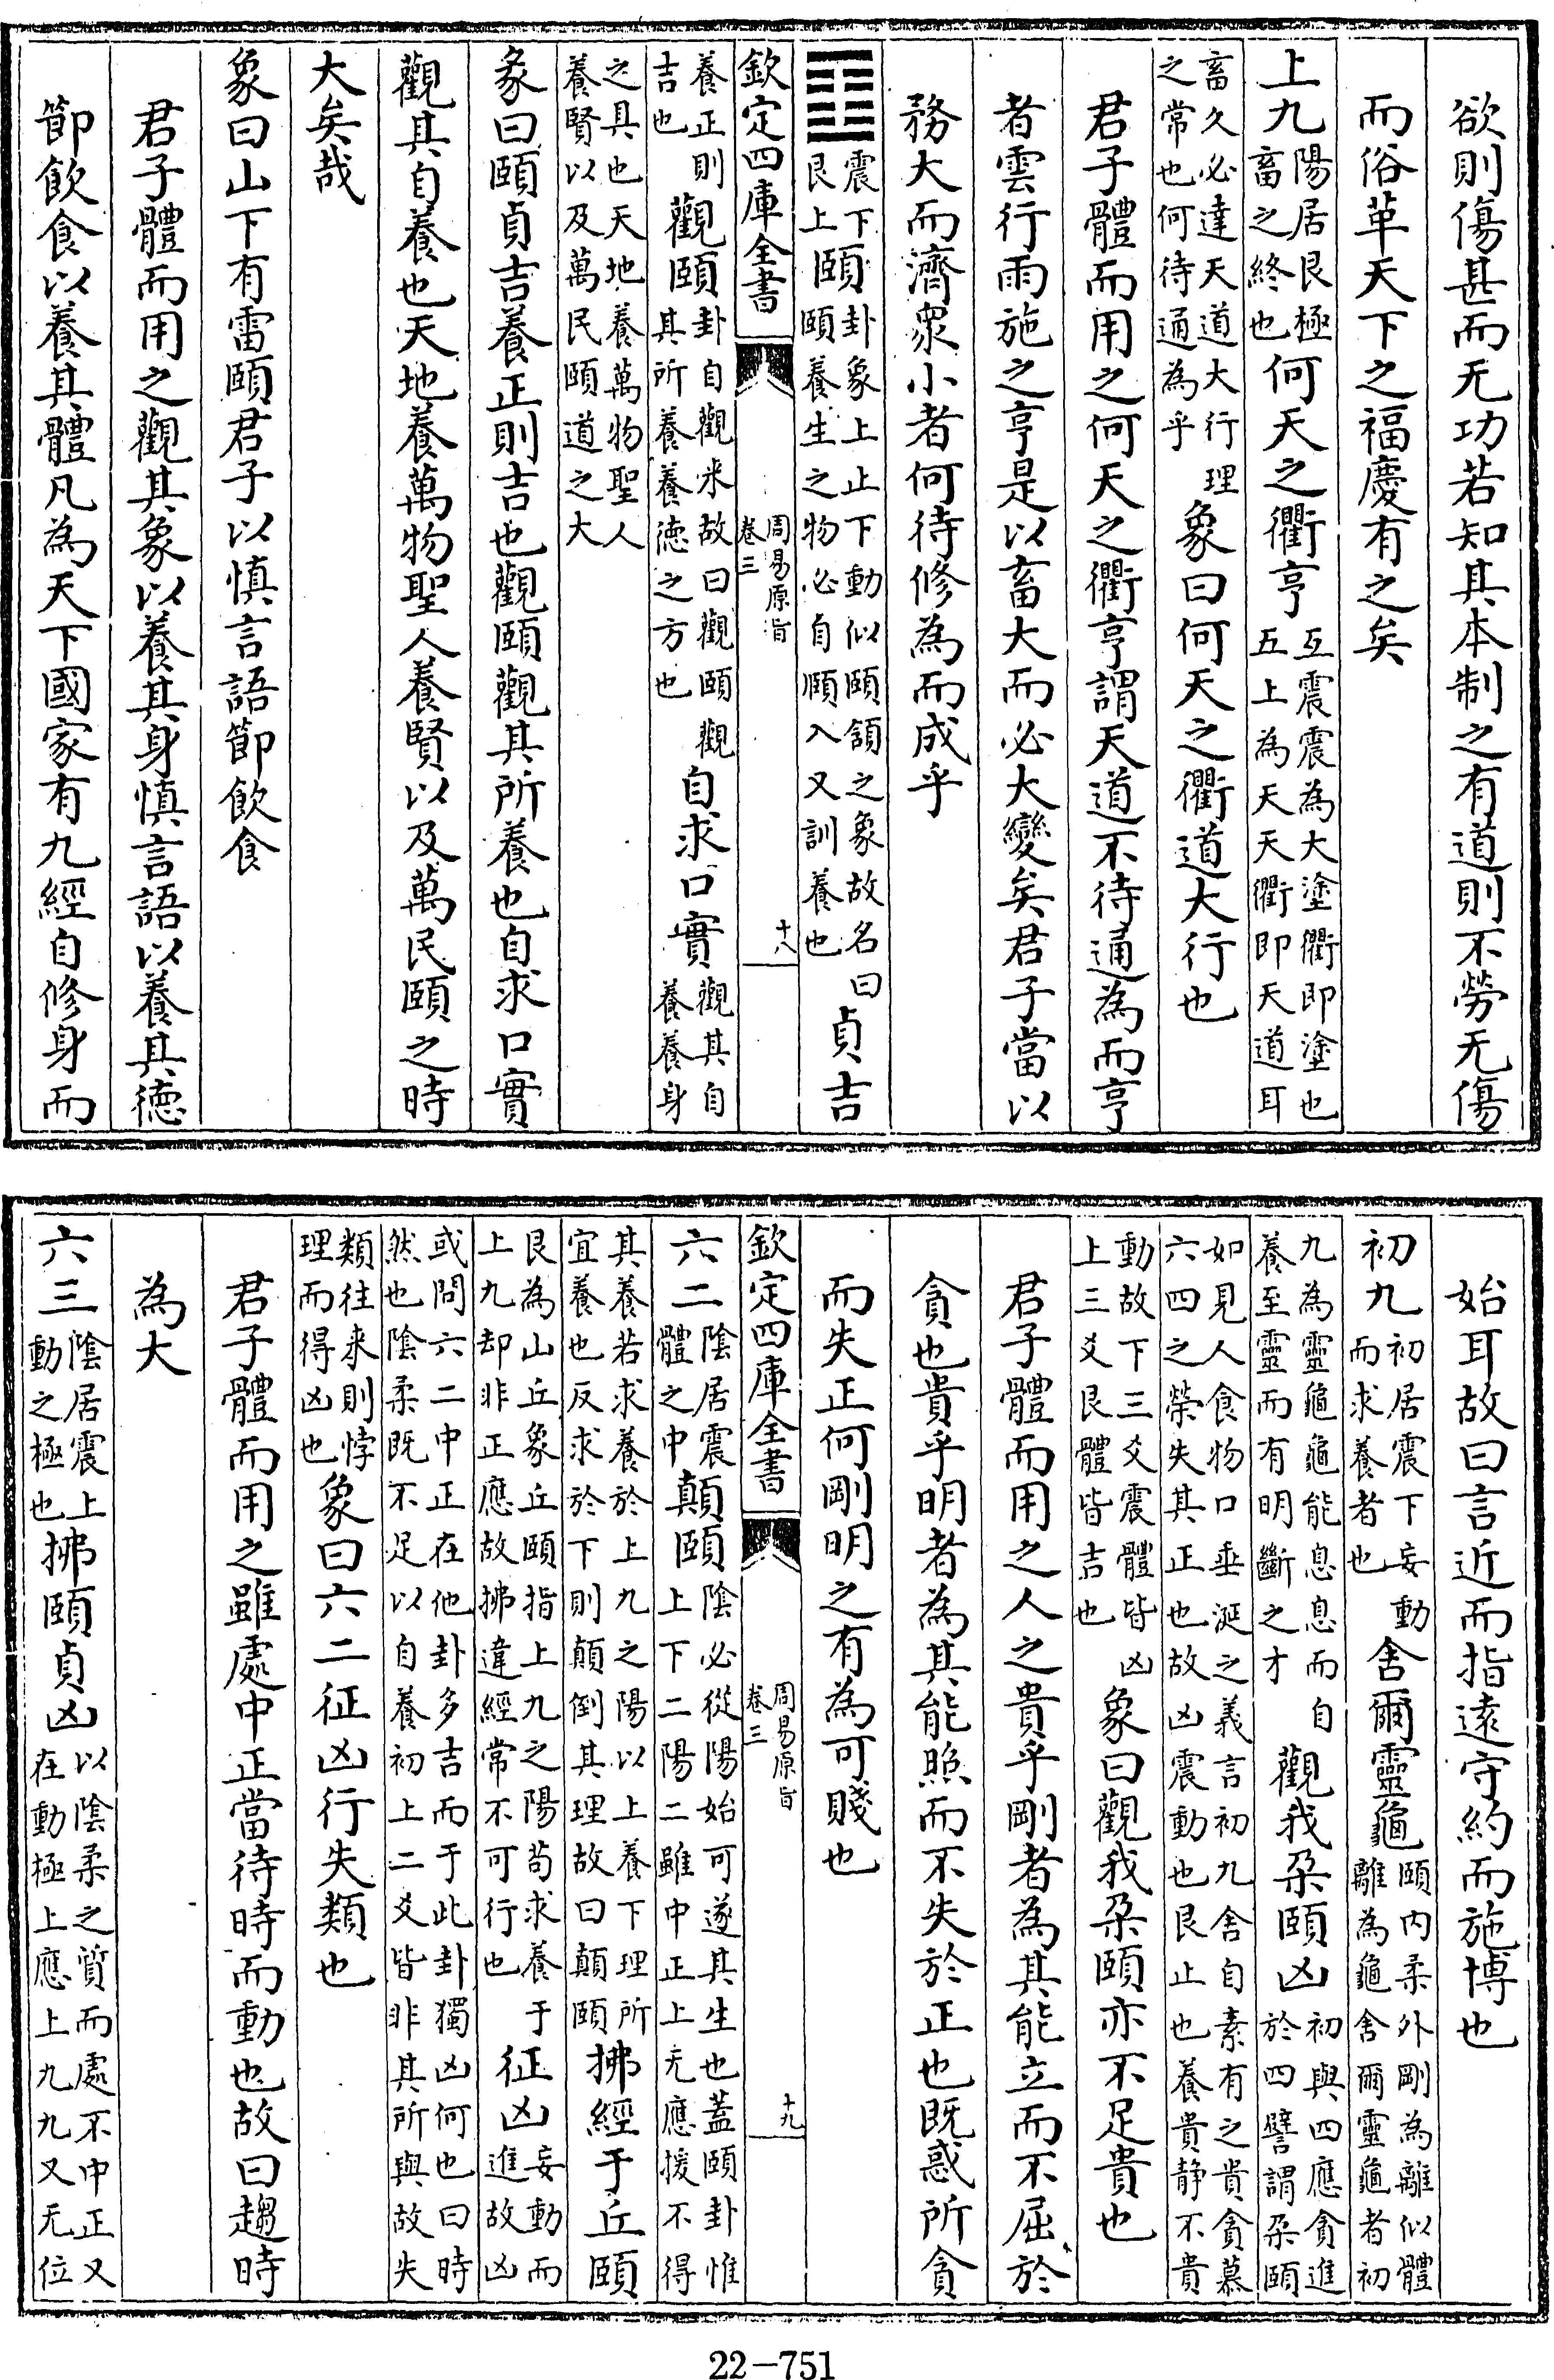 欲則傷甚而无功若知其本制之有道則不勞无傷
而俗革天下之福慶有之矣
上九陽居艮極畜之終也何天之衢亨互震震為大塗衢即塗也五上為天天衢即天道耳
畜久必達天道大行理之常也何待通為乎象曰何天之衢道大行也
君子體而用之何天之衢亨謂天道不待通為而亨
者雲行雨施之亨是以畜大而必大變矣君子當以
務大而濟衆小者何待修為而成乎
䷚震下艮上頤卦象上止下動似頤頷之象故名曰頤養生之物必自頤入又訓養也貞吉
欽定四庫全書 周易原旨卷三 十八
養正則吉也觀頤卦自觀來故曰觀頤觀其所養養德之方也自求口實觀其自養養身
之具也天地養萬物聖人養賢以及萬民頤道之大
彖曰頤貞吉養正則吉也觀頤觀其所養也自求口實
觀其自養也天地養萬物聖人養賢以及萬民頤之時
大矣哉
象曰山下有雷頤君子以慎言語節飲食
君子體而用之觀其象以養其身慎言語以養其德
節飲食以養其體凡為天下國家有九經自修身而
始耳故曰言近而指遠守約而施博也
初九初居震下妄動而求養者也舍爾靈龜頤内柔外剛為離似體離為龜舍爾靈龜者初
九為靈龜龜能息息而自養至靈而有明斷之才觀我朶頤凶初與四應貪進於四譬謂朶頤
如見人食物口垂涎之義言初九舍自素有之貴貪慕六四之榮失其正也故凶震動也艮止也養貴静不貴
動故下三爻震體皆凶上三爻艮體皆吉也象曰觀我朶頤亦不足貴也
君子體而用之人之貴乎剛者為其能立而不屈於
貪也貴乎明者為其能照而不失於正也既惑所貪
而失正何剛明之有為可賤也
欽定四庫全書 周易原旨卷三 十九
六二陰居震體之中顛頤陰必從陽始可遂其生也蓋頤卦惟上下二陽二雖中正上无應援不得
其養若求養於上九之陽以上養下理所宜養也反求於下則顛倒其理故曰顛頤拂經于丘頤
艮為山丘象丘頤指上九之陽茍求養于上九却非正應故拂違經常不可行也征凶妄動而進故凶
或問六二中正在他卦多吉而于此卦獨凶何也曰時然也陰柔既不足以自養初上二爻皆非其所與故失
類往來則悖理而得凶也象曰六二征凶行失類也
君子體而用之雖處中正當待時而動也故曰趨時
為大
六三陰居震上動之極也拂頤貞凶以陰柔之質而處不中正又在動極上應上九九又无位
22-751